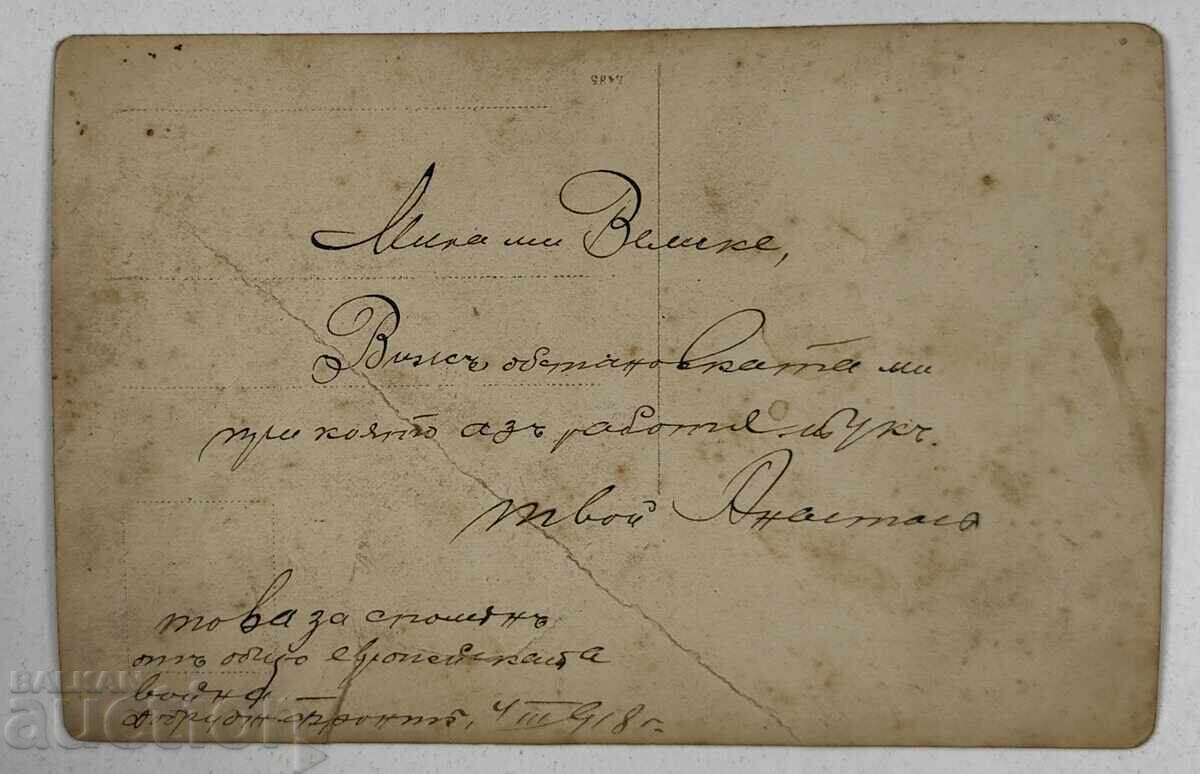 2485
Мила ми Велике,
Вижъ обстановката ми
при която азъ работя тукъ.
твой Анастасъ
това за споменъ
отъ общо европейската
война —
Добруджа фронтъ, 4 III 918 г.
BALKAN
auction